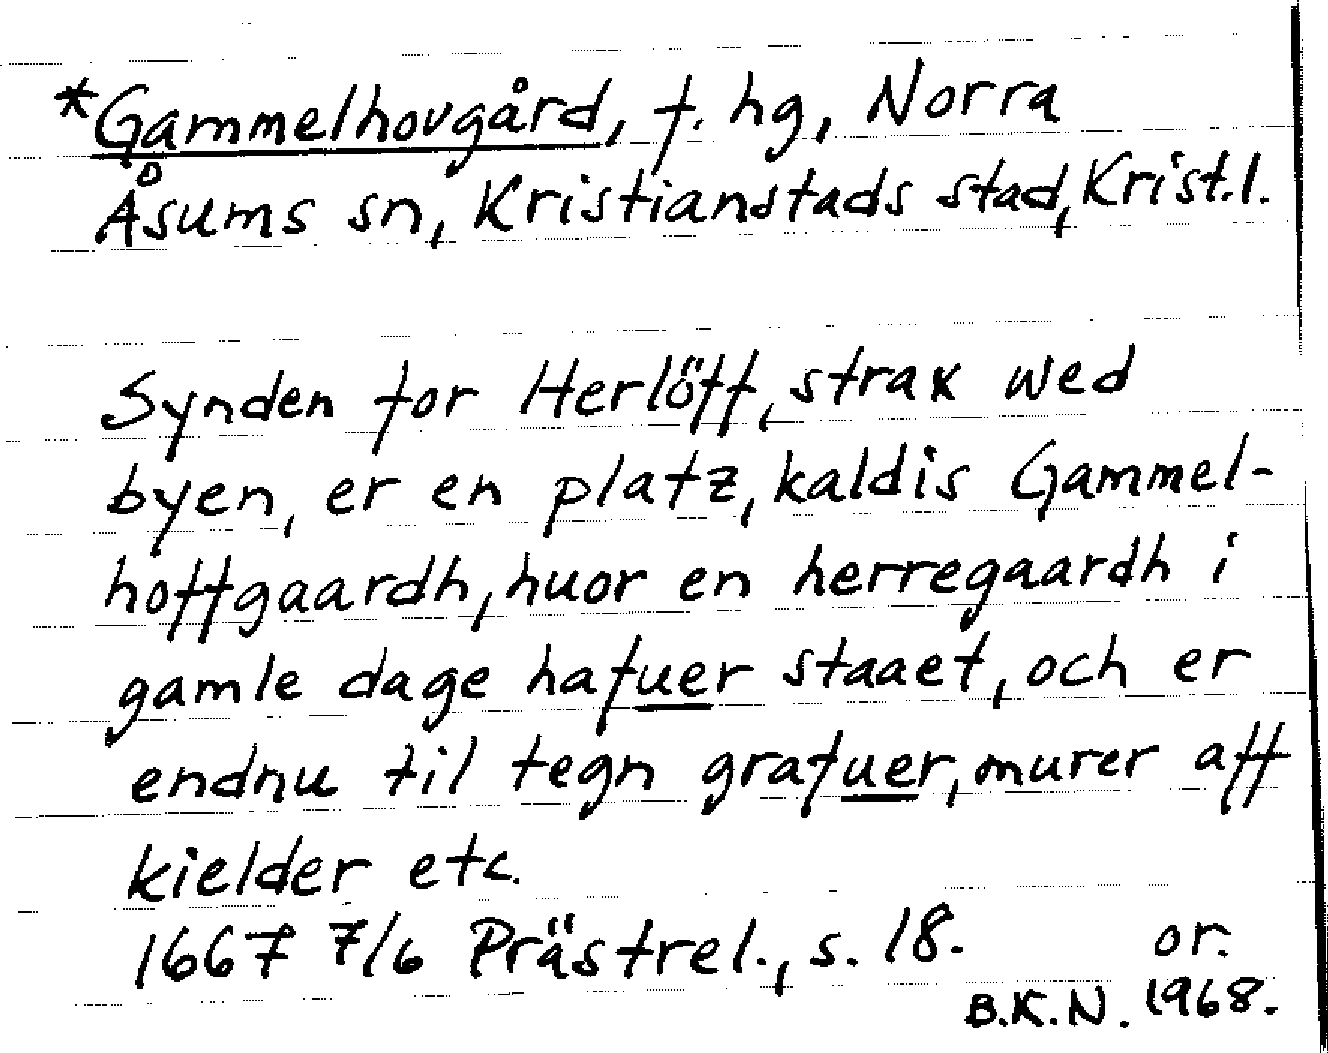 *Gammelhovgård, f. hg, Norra
Åsums sn, Kristianstads stad, Krist.l.
Synden for Herlöff, strax wed
byen, er en platz, kaldis Gammel-
hoffgaardh, huor en herregaardh i
gamle dage hafuer staaet, och er
endnu til tegn grafuer, murer aff
kielder etc.
1667 7/6 Prästrel., s. 18. or.
B.K.N. 1968.